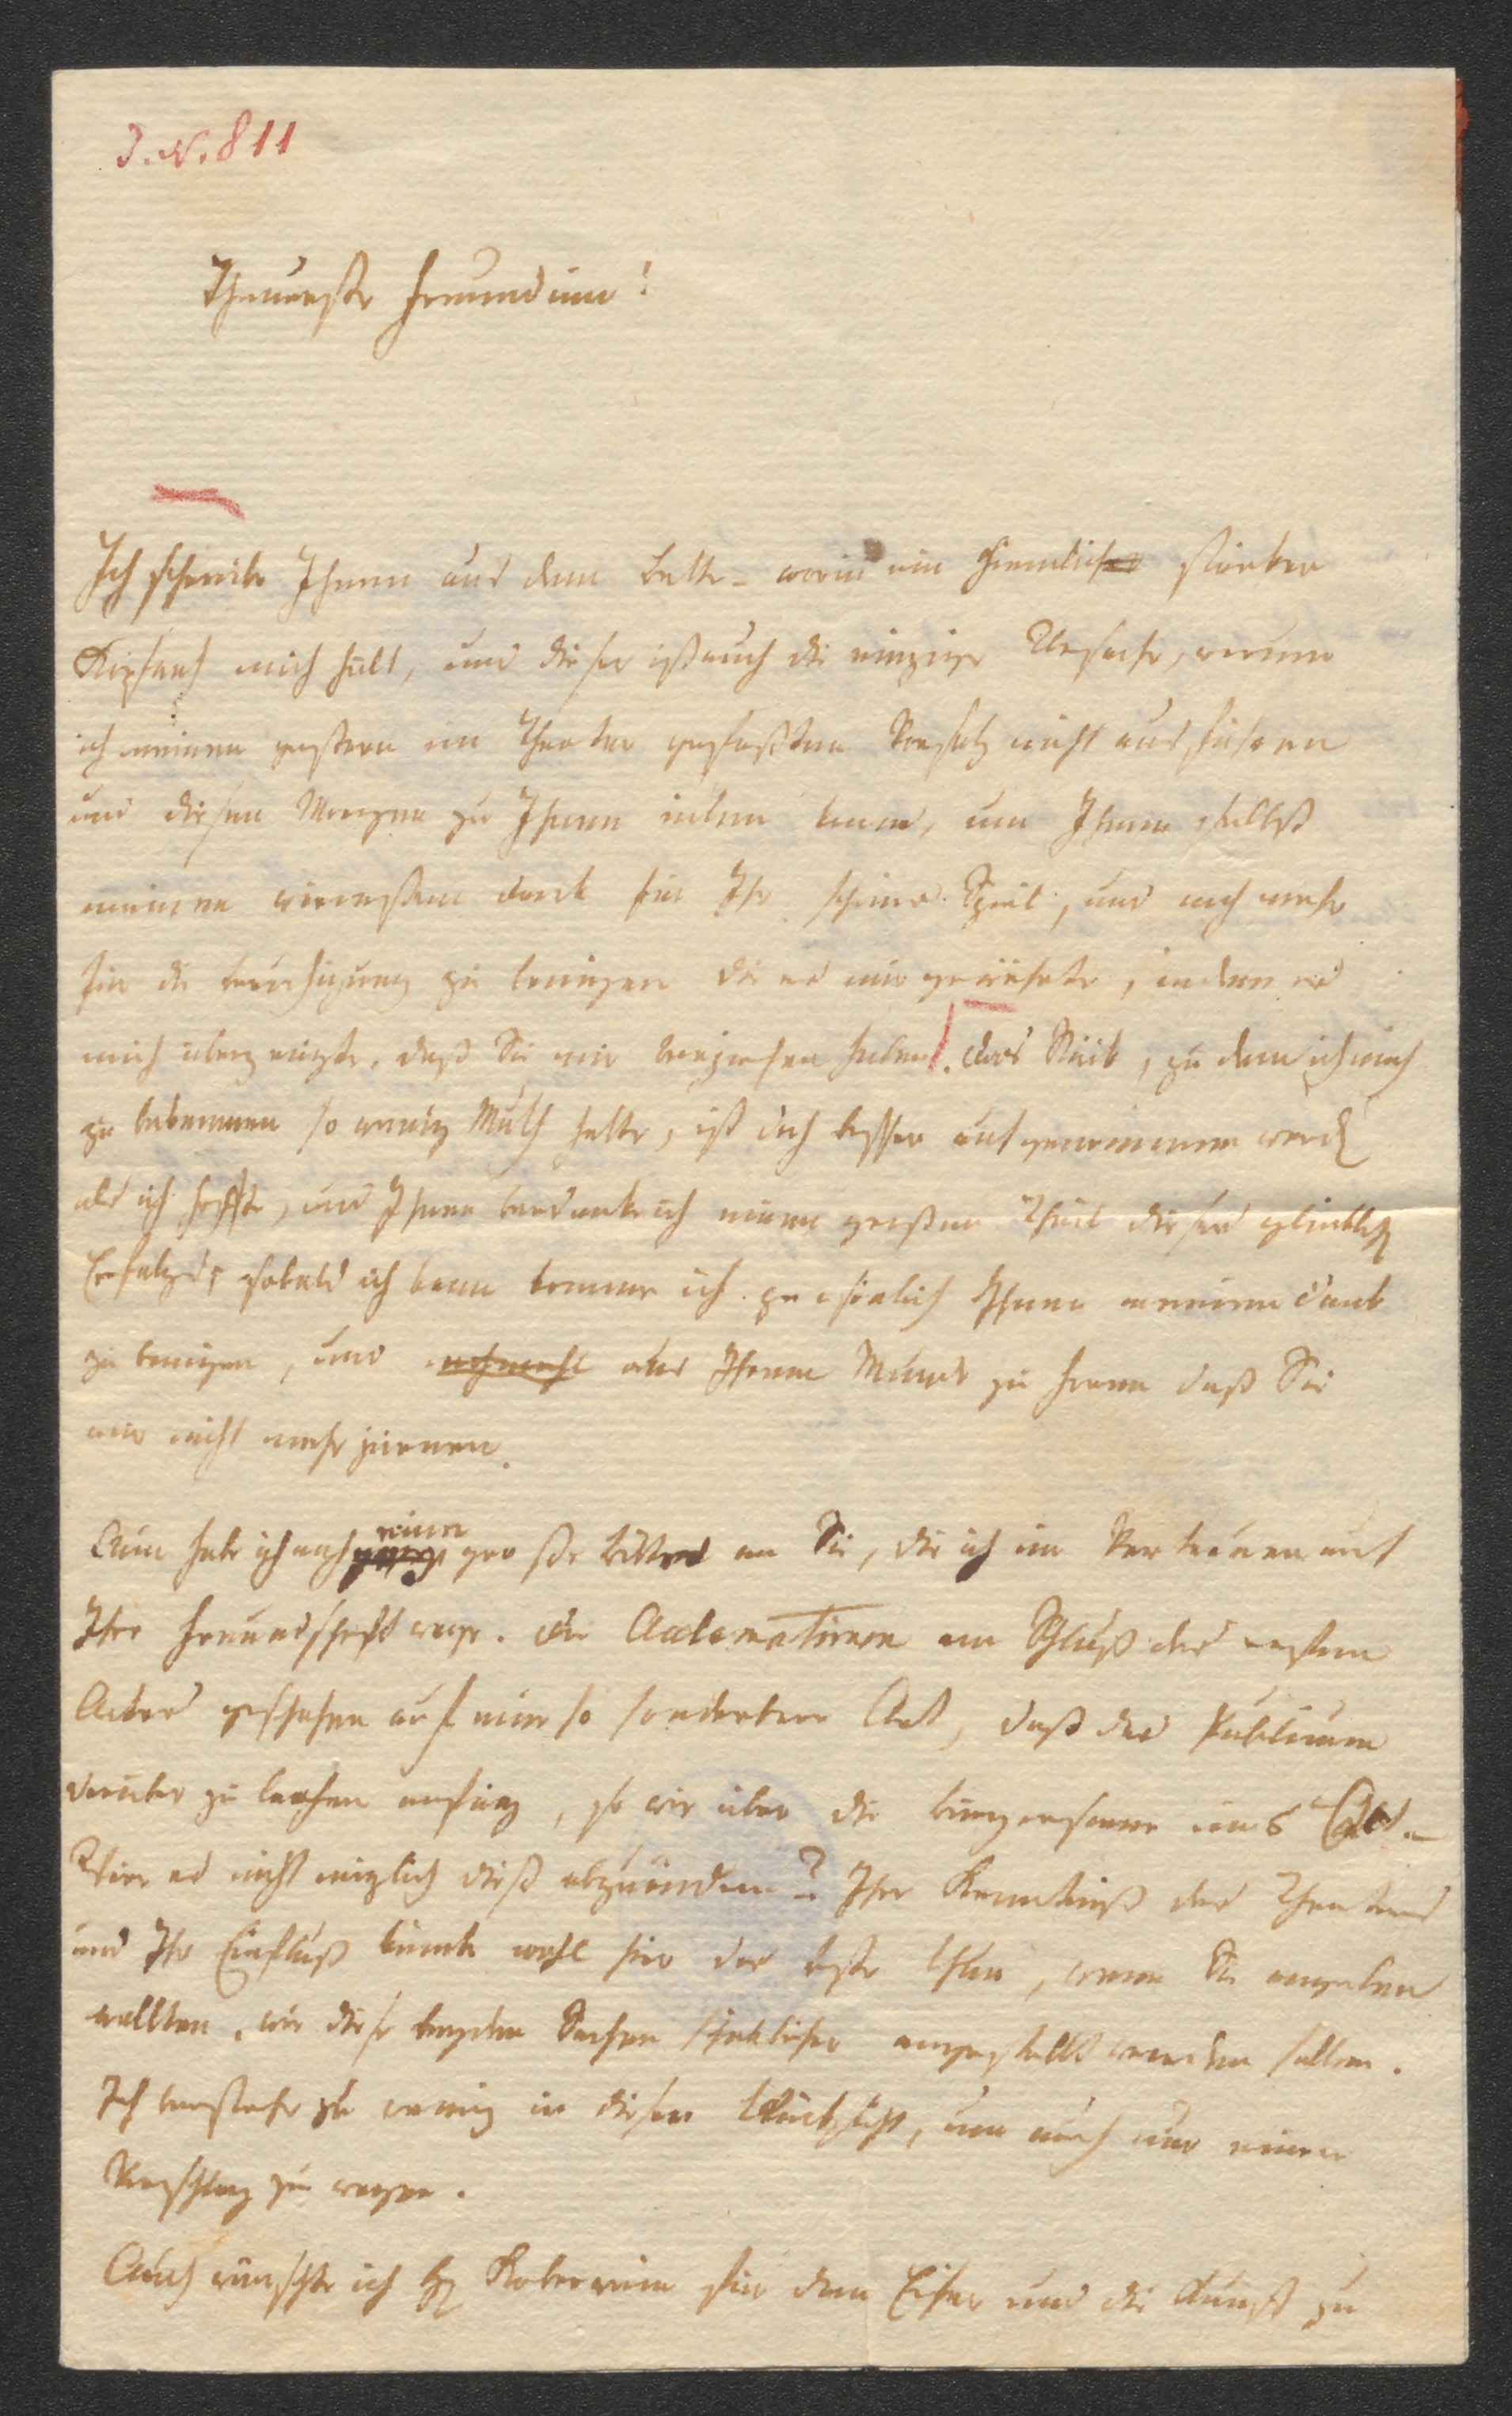 J. N. 811
Theuerste Freundinn!
Ich schreibe Ihnen aus dem Bette – worin ein ziemlicher starker
Kopfweh mich hält, und dieser ist auch die einzige Ursache, warum
ich meinen gestern im Theater gefaßten Vorsatz nicht ausführen
und diesen Morgen zu Ihnen eilen kann, um Ihnen selbst
meinen wärmsten Dank für Ihr schönes Spiel, und noch mehr
für die Beruhigung zu bringen die es mir gewährte, indem es
mich überzeugte, daß Sie mir verziehen haben. Das Stück, zu dem ich mich
zu bekennen so wenig Muth hatte, ist doch besser aufgenommen word
als ich hoffte, und Ihnen verdanke ich einen großen Theil dieses glücklich
Erfolges, sobald ich kann komme ich persönlich Ihnen meinen Dank
zu bringen, und nochmahl aus Ihrem Munde zu hören daß Sie
mir nicht mehr zürnen.
Nun habe ich noch eine große Bitte an Sie, die ich im Vertrauen auf
Ihre Freundschaft wage. Die Acclamationen am Schluß des ersten
Actes geschehen auf eine so sonderbare Art, daß das Publicum
darüber zu lachen anfing, so wie über die im 5
Wäre es nicht möglich dieß abzuändern? Ihre Kenntniß des Theaters
und Ihr Einfluß könnte wohl hier das beste thun, wenn Sie angeben
wollten, wie diese beyden Sachen schicklicher angestellt werden sollen.
Ich verstehe zu wenig in dieser Rücksicht, um auch nur einen
Vorschlag zu wagen.
Auch wünschte ich H Koberwein für den Eifer und die Kunst zu